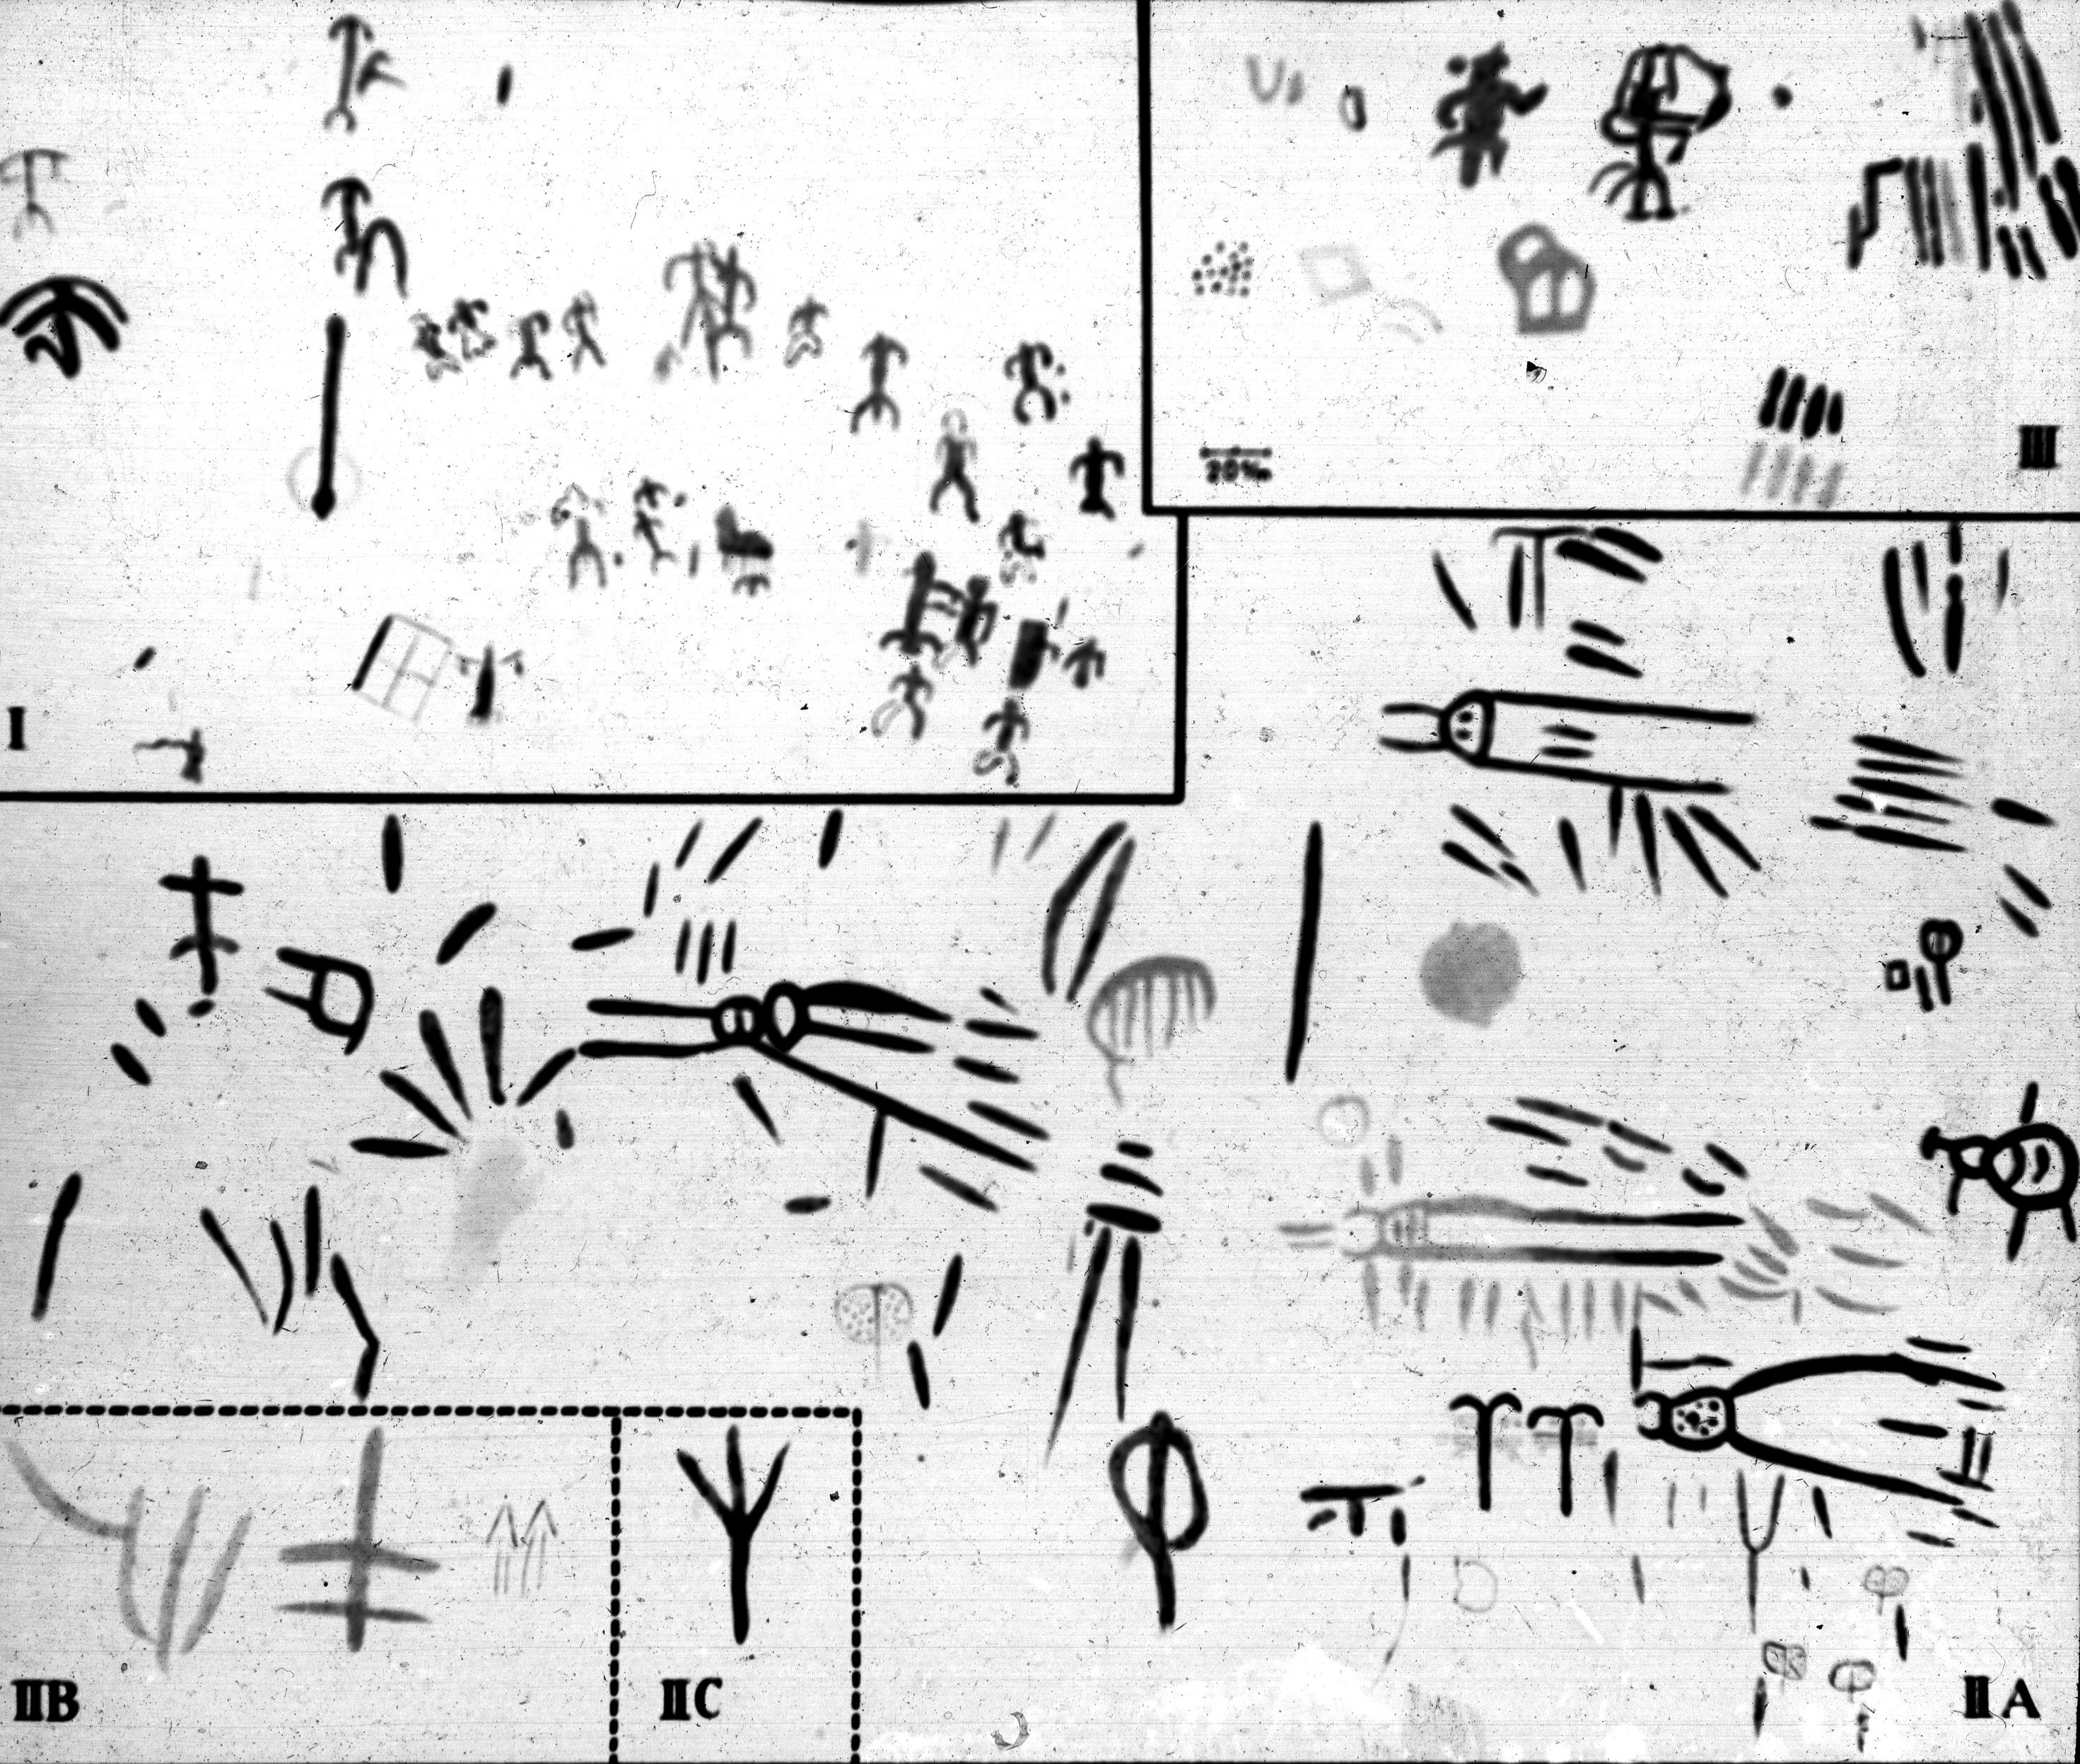 III
20‰
I
IIB
IIC
IIA